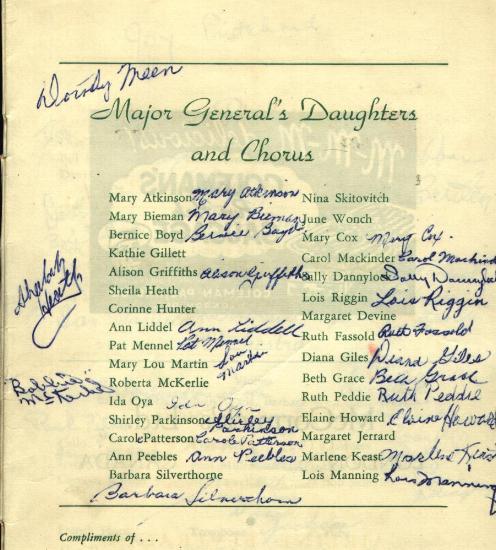 Dorothy Meen
Major General's Daughters
and Chorus
Mary Atkinson Mary Atkinson
Mary Bieman Mary Bieman
Bernice Boyd Bernice Boyd
Kathie Gillett
Alison Griffiths Alison Griffiths
Sheila Heath
Corinne Hunter
Ann Liddel Ann Liddell
Pat Mennel Pat Mennel
Mary Lou Martin Lou Martin
Roberta McKerlie
Ida Oya Ida Oya
Shirley Parkinson Shirley Parkinson
Carole Patterson Carole Patterson
Ann Peebles Ann Peebles
Barbara Silverthorne
Barbara Silverthorn
Sheilah Heath
"Bobbie"
Nina Skitovitch
June Wonch
Mary Cox Mary Cox
Carol Mackinder Carol Mackind
Sally Dannylock Sally Dannylock
Lois Riggin Lois Riggin
Margaret Devine
Ruth Fassold Ruth Fassold
Diana Giles Diana Giles
Beth Grase Beth Grase
Ruth Peddie Ruth Peddie
Elaine Howard Elaine Howard
Margaret Jerrard
Marlene Keast Marlene Keast
Lois Manning Lois Manning
Compliments of . . .